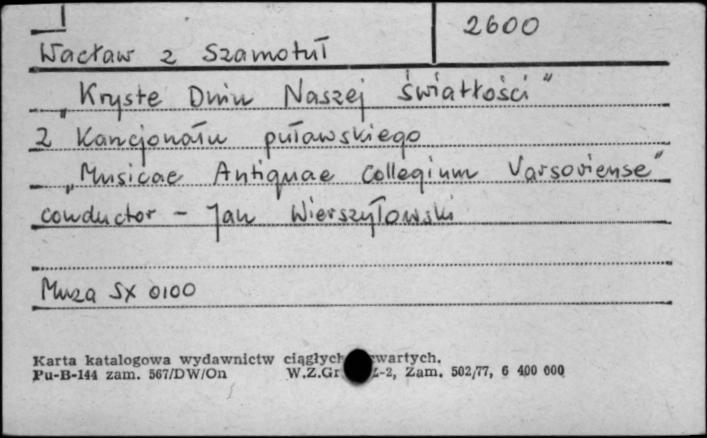 2600
Wacław z Szamotuł
"Kryste Dniu Naszej światłości"
z Kancjonału puławskiego
"Musicae Antiquae Collegium Varsoviense"
conductor - Jan Wierszyłowski
Muza SX 0100
Karta katalogowa wydawnictw ciągłych wartych.
Pu-B-144 zam. 567/DW/On W.Z.Gr Z-2, Zam. 502/77, 6 400 000